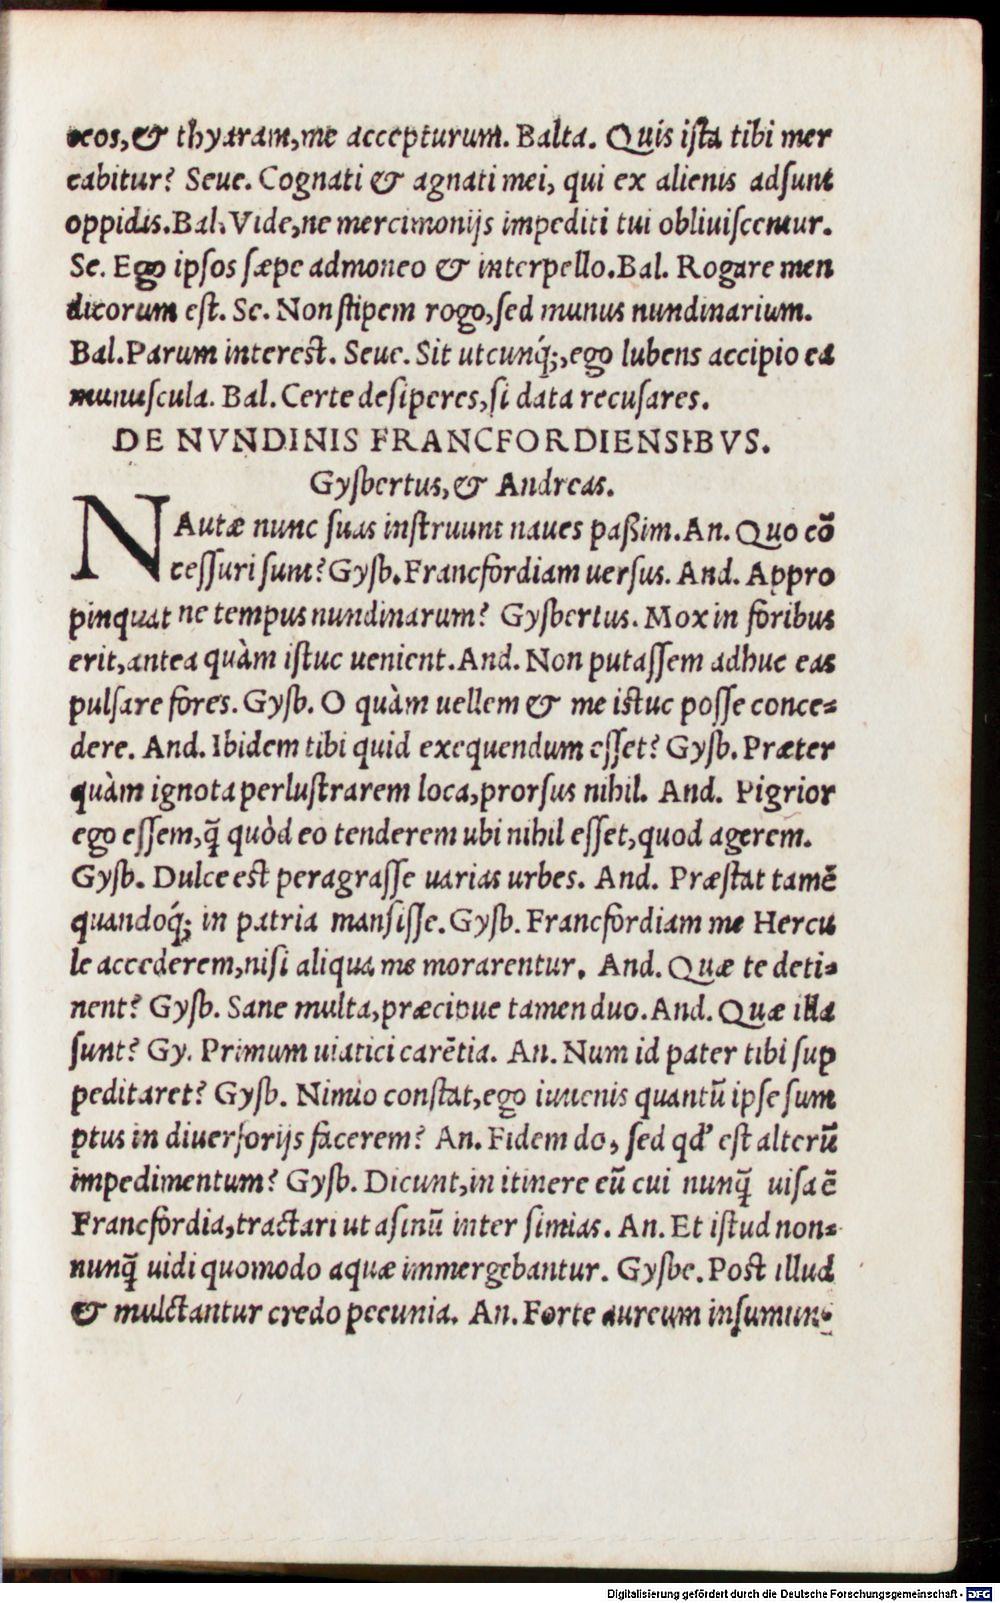 ocos,& thyaram,me accepturum. Balta. Quis ista tibi mer
cabitur? Seue. Cognati & agnati mei, qui ex alienis adsunt
oppidis. Bal. Vide,ne mercimonijs impediti tui obliuiscentur.
Se. Ego ipsos sæpe admoneo & interpello. Bal. Rogare men
dicorum est. Se. Non stipem rogo,sed munus nundinarium.
Bal. Parum interest. Seue. Sit utcunq́;,ego lubens accipio ea
munuscula. Bal. Certe desiperes,si data recusares.
DE NVNDINIS FRANCFORDIENSIBVS.
Gysbertus,& Andreas.
NAutæ nunc suas instruunt naues paßim. An. Quo cō
cessuri sunt? Gysb. Francfordiam uersus. And. Appro
pinquat ne tempus nundinarum? Gysbertus. Mox in foribus
erit,antea quàm istuc uenient. And. Non putassem adhuc eas
pulsare fores. Gysb. O quàm uellem & me istuc posse conce=
dere. And. Ibidem tibi quid exequendum esset? Gysb. Præter
quàm ignota perlustrarem loca,prorsus nihil. And. Pigrior
ego essem,q̄ quòd eo tenderem ubi nihil esset,quod agerem.
Gysb. Dulce est peragrasse uarias urbes. And. Præstat tamē
quandoq́; in patria mansisse. Gysb. Francfordiam me Hercu
le accederem,nisi aliqua me morarentur. And. Quæ te deti=
nent? Gysb. Sane multa,præcipue tamen duo. And. Quæ illa
sunt? Gy. Primum uiatici carētia. An. Num id pater tibi sup
peditaret? Gysb. Nimio constat,ego iuuenis quantū ipse sum
ptus in diuersorijs facerem? An. Fidem do, sed qd' est alterū
impedimentum? Gysb. Dicunt,in itinere eū cui nunq̄ uisa ē
Francfordia,tractari ut asinū inter simias. An. Et istud non=
nunq̄ uidi quomodo aquæ immergebantur. Gysbe. Post illud
& mulctantur credo pecunia. An. Forte aureum insumun=
Digitalisierung gefördert durch die Deutsche Forschungsgemeinschaft - DFG